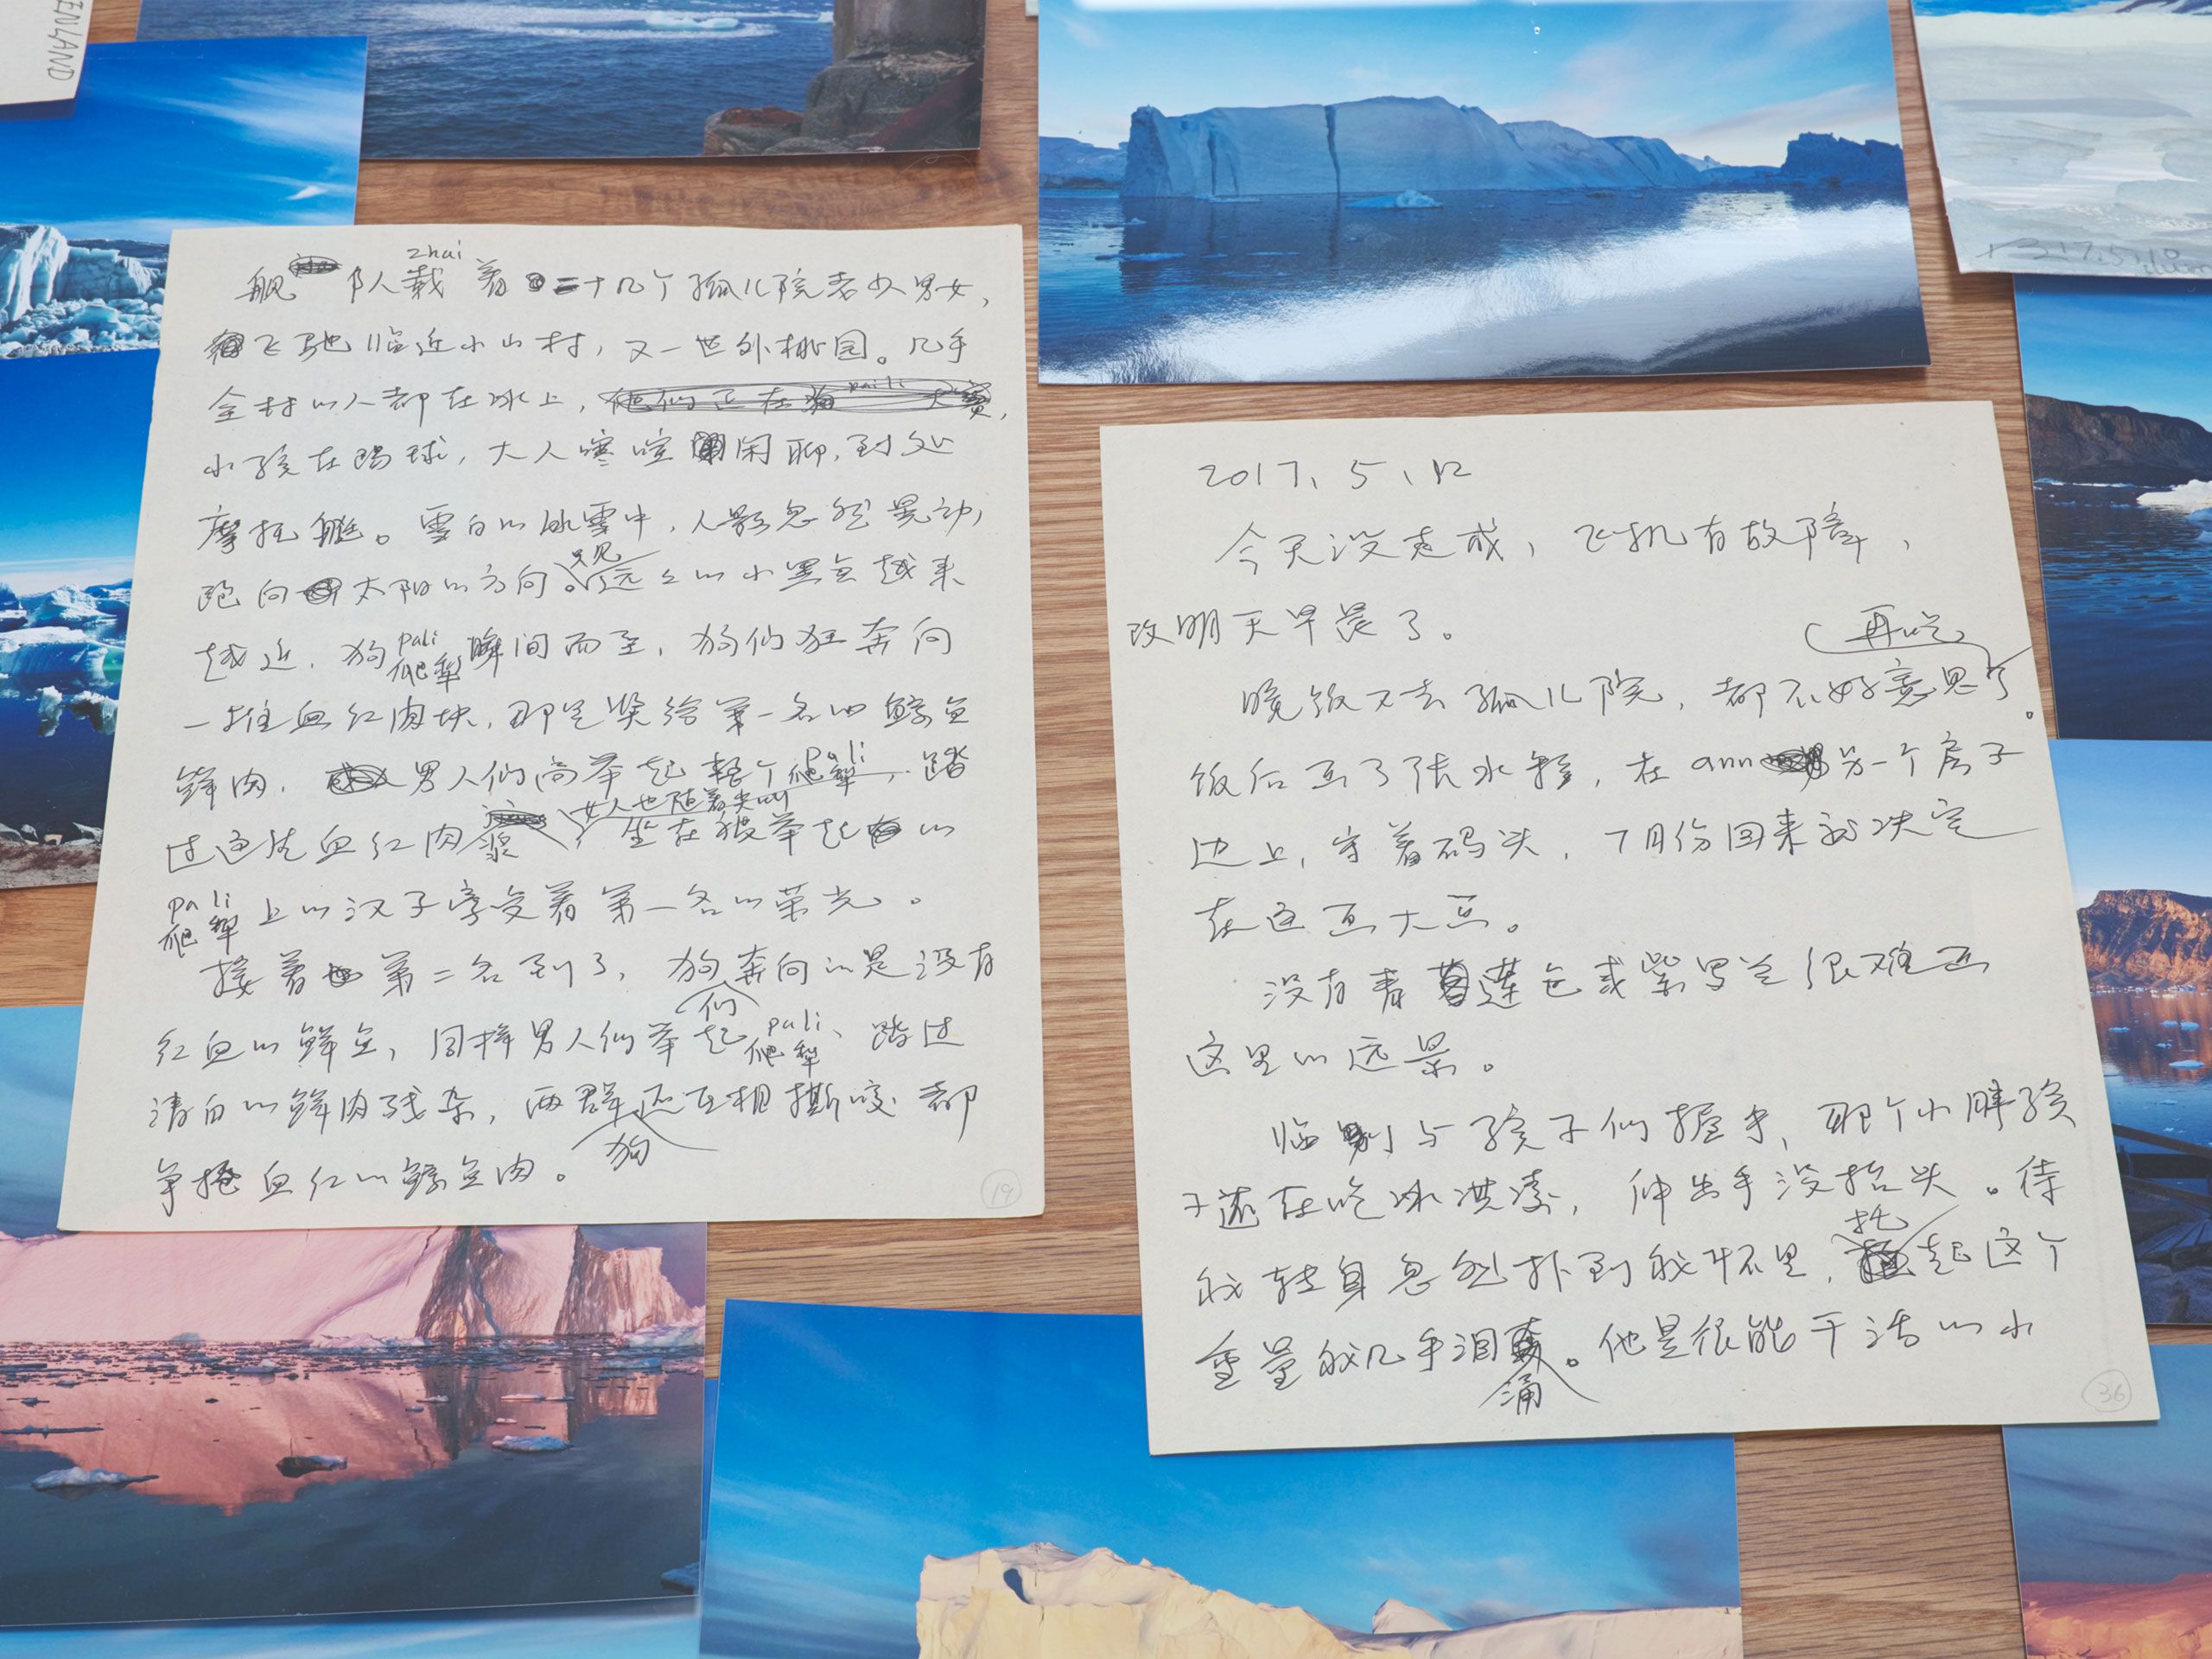 ENLAND
zhai
舰队载着二十几个孤儿院老少男女，
飞驰临近小山村，又一世外桃园。几乎
全村的人都在冰上，
小孩在踢球，大人寒喧闲聊，到处
摩托艇。雪白的冰雪中，人影忽然晃动，
跑向太阳的方向。只见远远的小黑点越来
越近，狗爬犁瞬间而至，狗们狂奔向
pali
一堆血红肉块，那是奖给第一名的鲸鱼
鲜肉，男人们高举起整个爬犁，踏
pali
过这生血红肉浆，女人也随着尖叫
坐在被举起的
pali
爬犁上的汉子享受着第一名的荣光。
接着第二名到了，狗们奔向的是没有
红血的鲜鱼，同样男人们举起爬犁，踏过
pali
清白的鲜肉残杂，两群狗还互相撕咬都
争抢血红的鲸鱼肉。
19
2017、5、12
今天没走成，飞机有故障，
改明天早晨了。
晚饭又去孤儿院，都不好意思再吃了。
饭后画了张水彩，在ann另一个房子
边上，守着码头，7月份回来就决定
在这画大画。
没有青莲色或紫罗兰很难画
这里的远景。
临别与孩子们握手，那个小胖孩
子还在吃冰淇凌，伸出手没抬头。待
我转身忽然扑到我怀里，托起这个
重量我几乎泪涌。他是很能干活的小
36